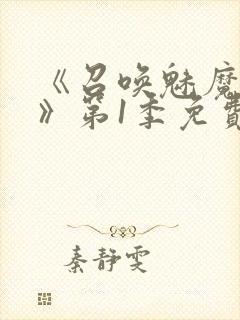 《召唤魅魔
》第1季免費
秦静雯